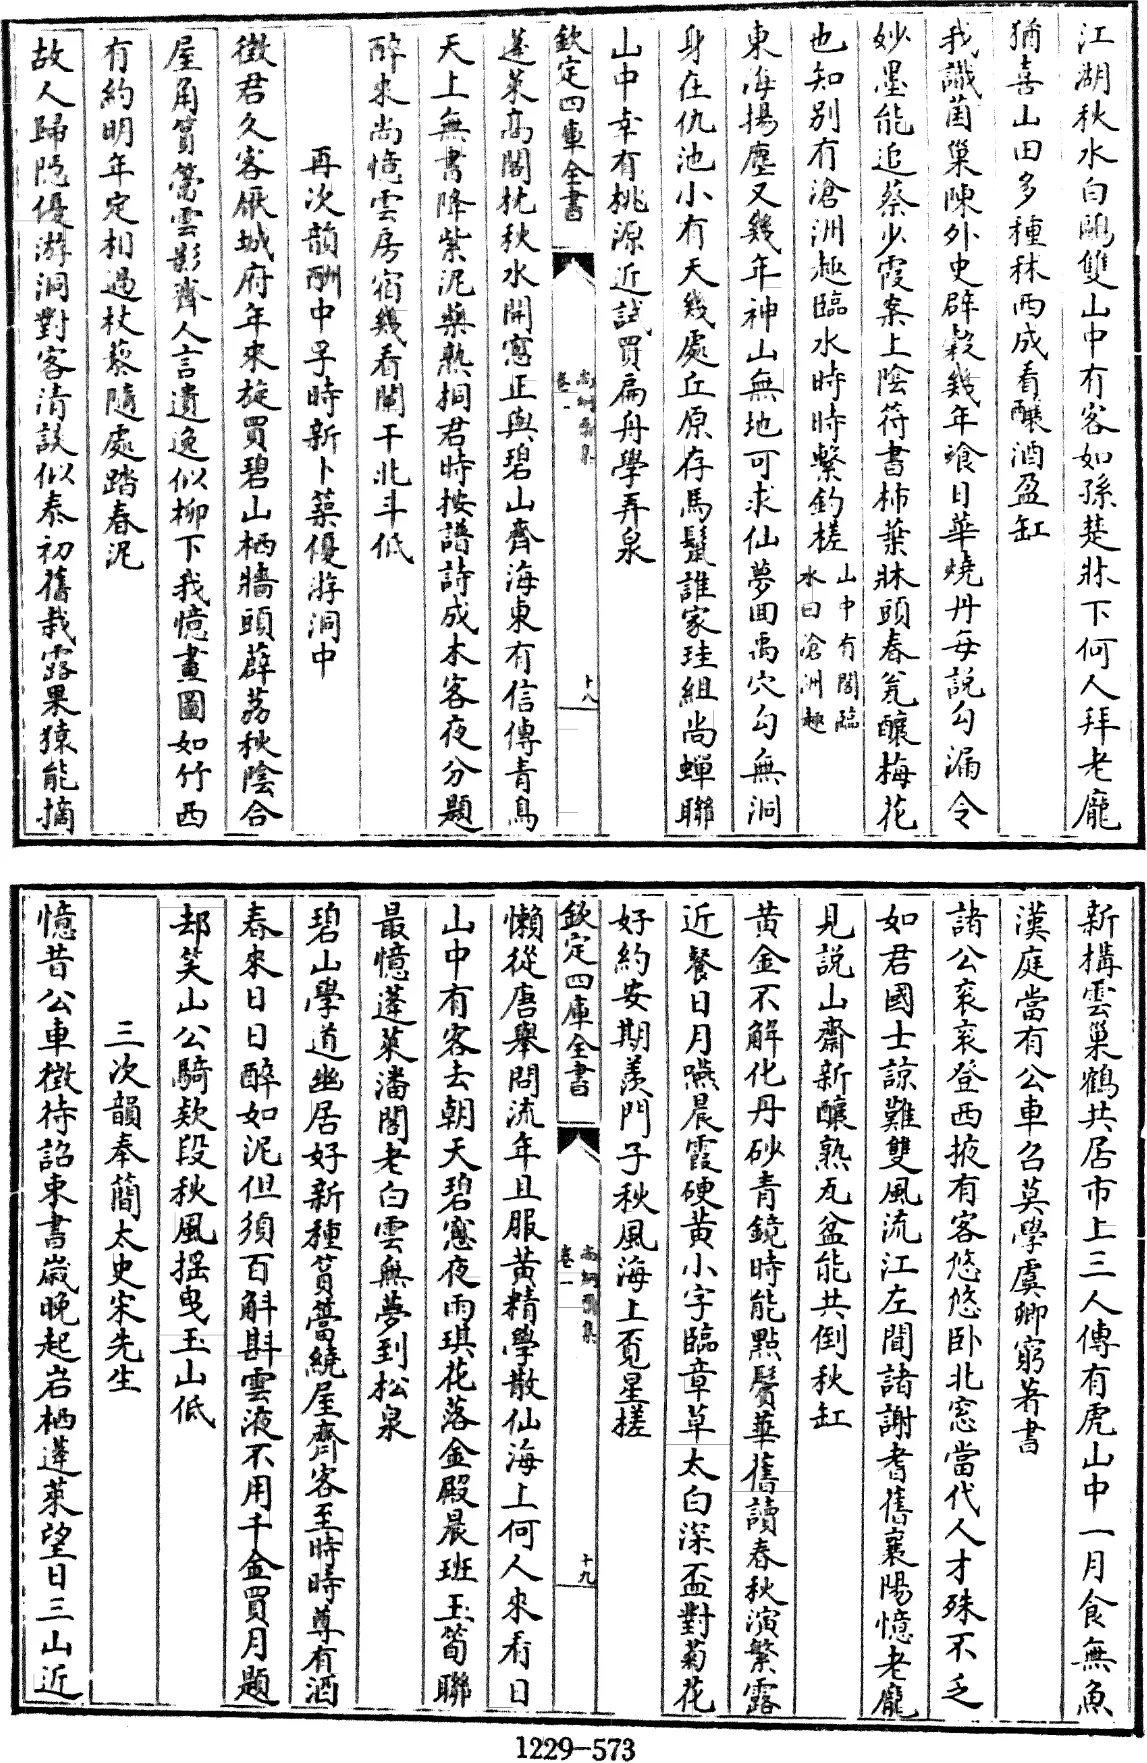 江湖秋水白鷗雙山中有客如孫楚牀下何人拜老龐
猶喜山田多種秫西成看釀酒盈缸
我識菌巢陳外史辟穀幾年飡日華燒丹每說勾漏令
妙墨能追蔡少霞案上陰符書柿葉牀頭春瓮釀梅花
也知別有滄洲趣臨水時時繫釣槎
山中有閣臨
水曰滄洲趣
東海揚塵又幾年神山無地可求仙夢回禹穴勾無洞
身在仇池小有天幾處丘原存馬鬛誰家珪組尚蟬聯
山中幸有桃源近試買扁舟學弄泉
欽定四庫全書
尚絅齋集
卷一
十八
蓬萊高閣枕秋水開窻正與碧山齊海東有信傳青鳥
天上無書降紫泥藥熟桐君時按譜詩成木客夜分題
醉來尚憶雲房宿幾看闌干北斗低
再次韻酬中孚時新卜築優游洞中
徵君久客依城府年來旋買碧山栖牆頭薜荔秋陰合
屋角篔簹雲影齊人言遺逸似柳下我憶畫圖如竹西
有約明年定相過杖藜隨處踏春泥
故人歸隐優游洞對客清談似泰初舊栽露果猿能摘
新構雲巢鶴共居市上三人傳有虎山中一月食無魚
漢庭當有公車召莫學虞卿窮著書
諸公衮衮登西掖有客悠悠卧北窻當代人才殊不乏
如君國士諒難雙風流江左聞諸謝耆舊襄陽憶老龐
見說山齋新釀熟瓦盆能共倒秋缸
黄金不解化丹砂青鏡時能點鬢華舊讀春秋演繁露
近餐日月嚥晨霞硬黄小字臨章草太白深盃對菊花
好約安期羡門子秋風海上覓星槎
欽定四庫全書
尚絅齋集
卷一
十九
懶從唐舉問流年且服黄精學散仙海上何人來看日
山中有客去朝天碧窻夜雨琪花落金殿晨班玉筍聯
最憶蓬萊潘閣老白雲無夢到松泉
碧山學道幽居好新種篔簹繞屋齊客至時時尊有酒
春來日日醉如泥但須百斛斟雲液不用千金買月題
却笑山公騎欵段秋風摇曳玉山低
三次韻奉簡太史宋先生
憶昔公車徵待詔東書歲晚起岩栖蓬萊望日三山近
1229–573